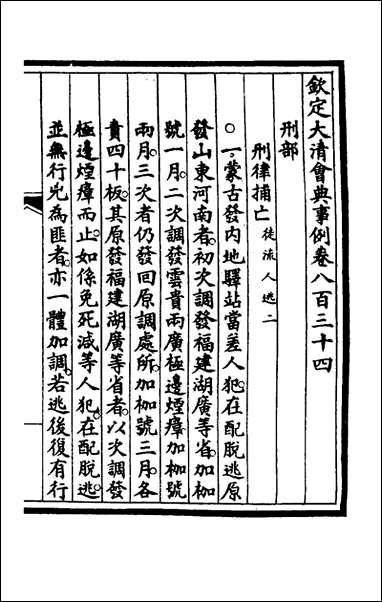 欽定大清會典事例卷八百三十四
刑部
刑律捕亡徒流人逃二
○一蒙古發內地驛站當差人犯在配脫逃原
發山東河南者初次調發福建湖廣等省加枷
號一月二次調發雲貴兩廣極邊煙瘴加枷號
兩月三次者仍發回原調處所加枷號三月各
責四十板其原發福建湖廣等省者以次調發
極邊煙瘴而止如係免死減等人犯在配脫逃
並無行兇為匪者亦一體加調若逃後復有行